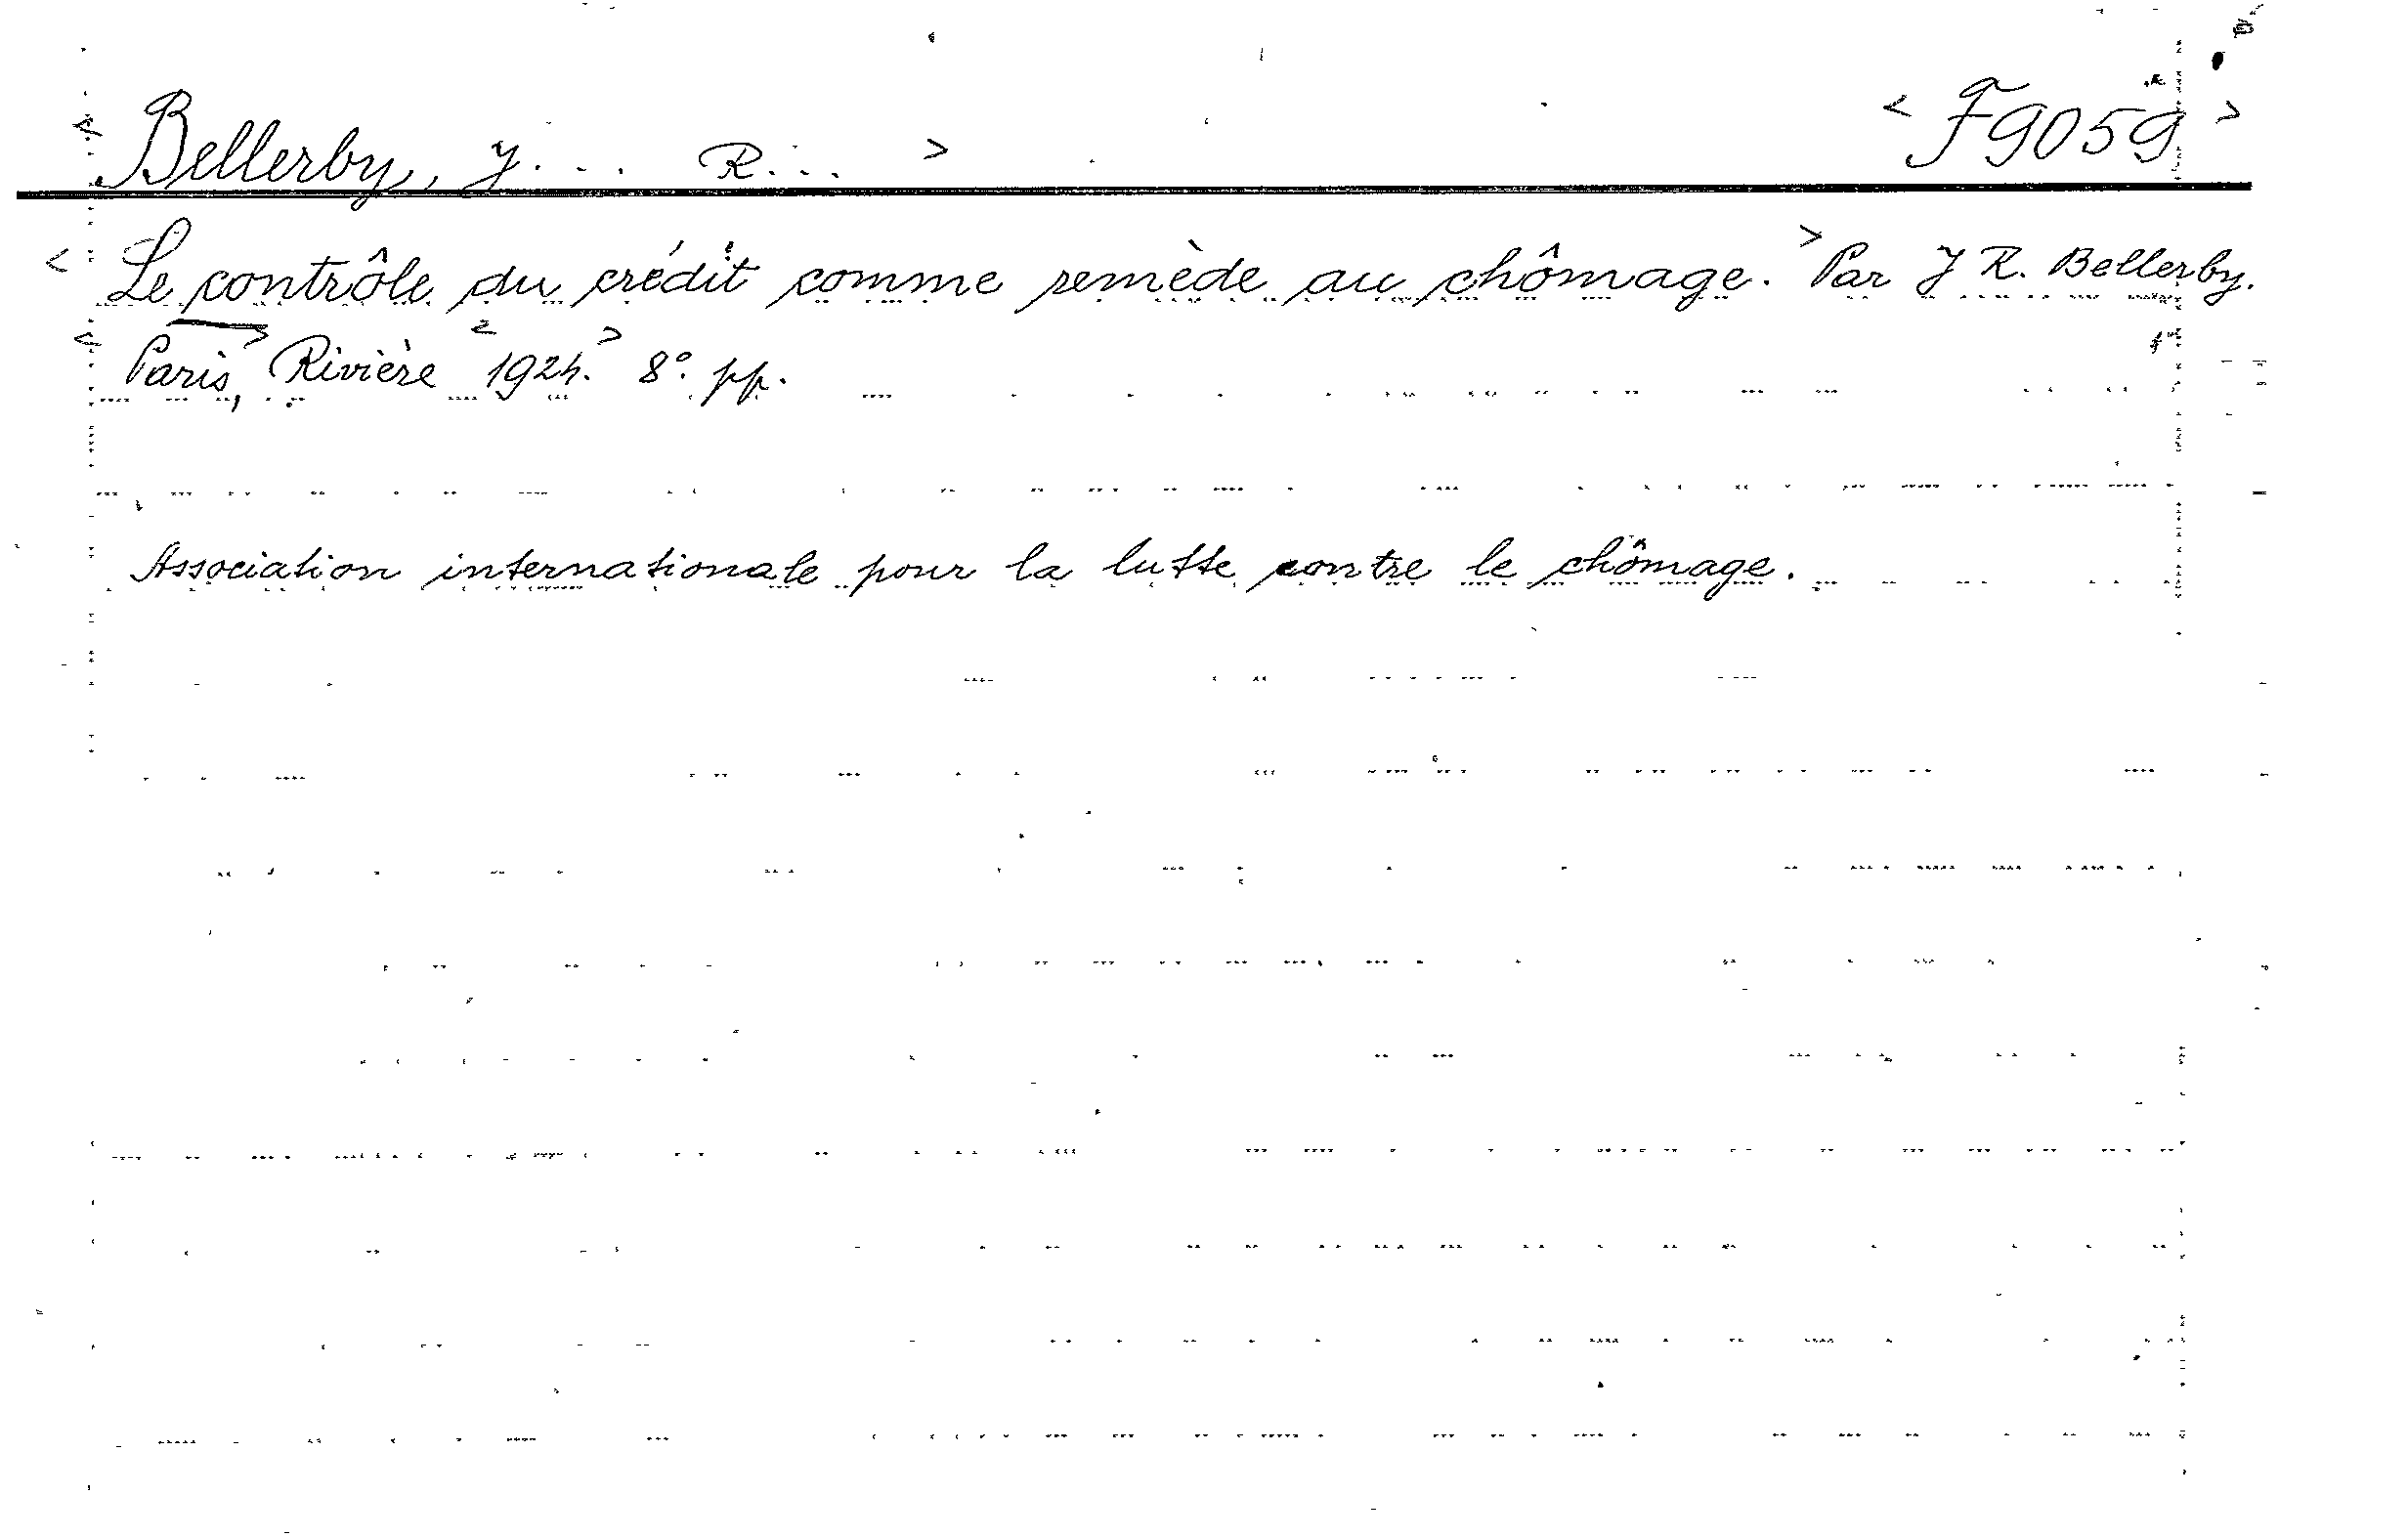 < Bellerby, J... R... > < F9059 >
< Le contrôle du crédit comme remède au chômage. > Par J R. Bellerby.
< Paris, > Rivière < 1924. > 8° pp.
Association internationale pour la lutte contre le chômage.